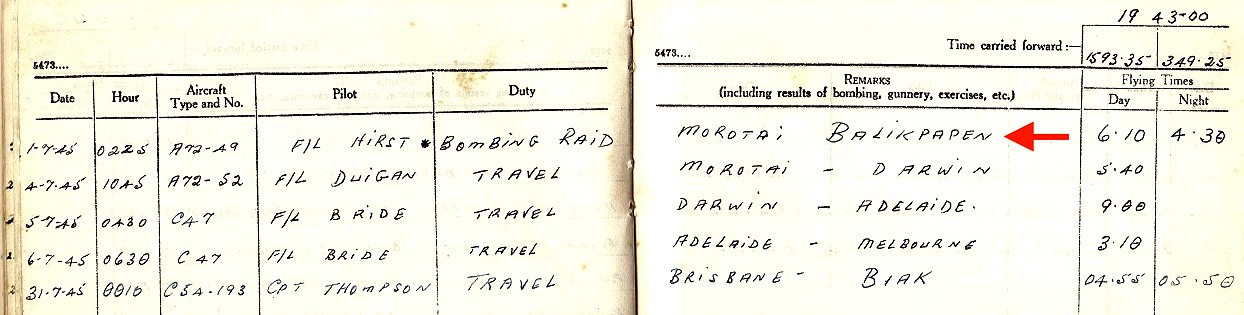 19 43-00
5473....
5473....
Time carried forward :— 1593.35 349.25
Date Hour Aircraft Type and No. Pilot Duty
REMARKS (including results of bombing, gunnery, exercises, etc.) Flying Times Day Night
1-7-45 0225 A72-49 F/L HIRST * BOMBING RAID MOROTAI BALIKPAPEN 6.10 4.30
2 4-7-45 1045 A72-52 F/L DUIGAN TRAVEL MOROTAI - DARWIN 5.40
5-7-45 0430 C47 F/L BRIDE TRAVEL DARWIN - ADELAIDE. 9.00
2 6-7-45 0630 C47 F/L BRIDE TRAVEL ADELAIDE - MELBOURNE 3.10
2 31-7-45 0010 C54-193 CPT THOMPSON TRAVEL BRISBANE - BIAK 04.55 05.50